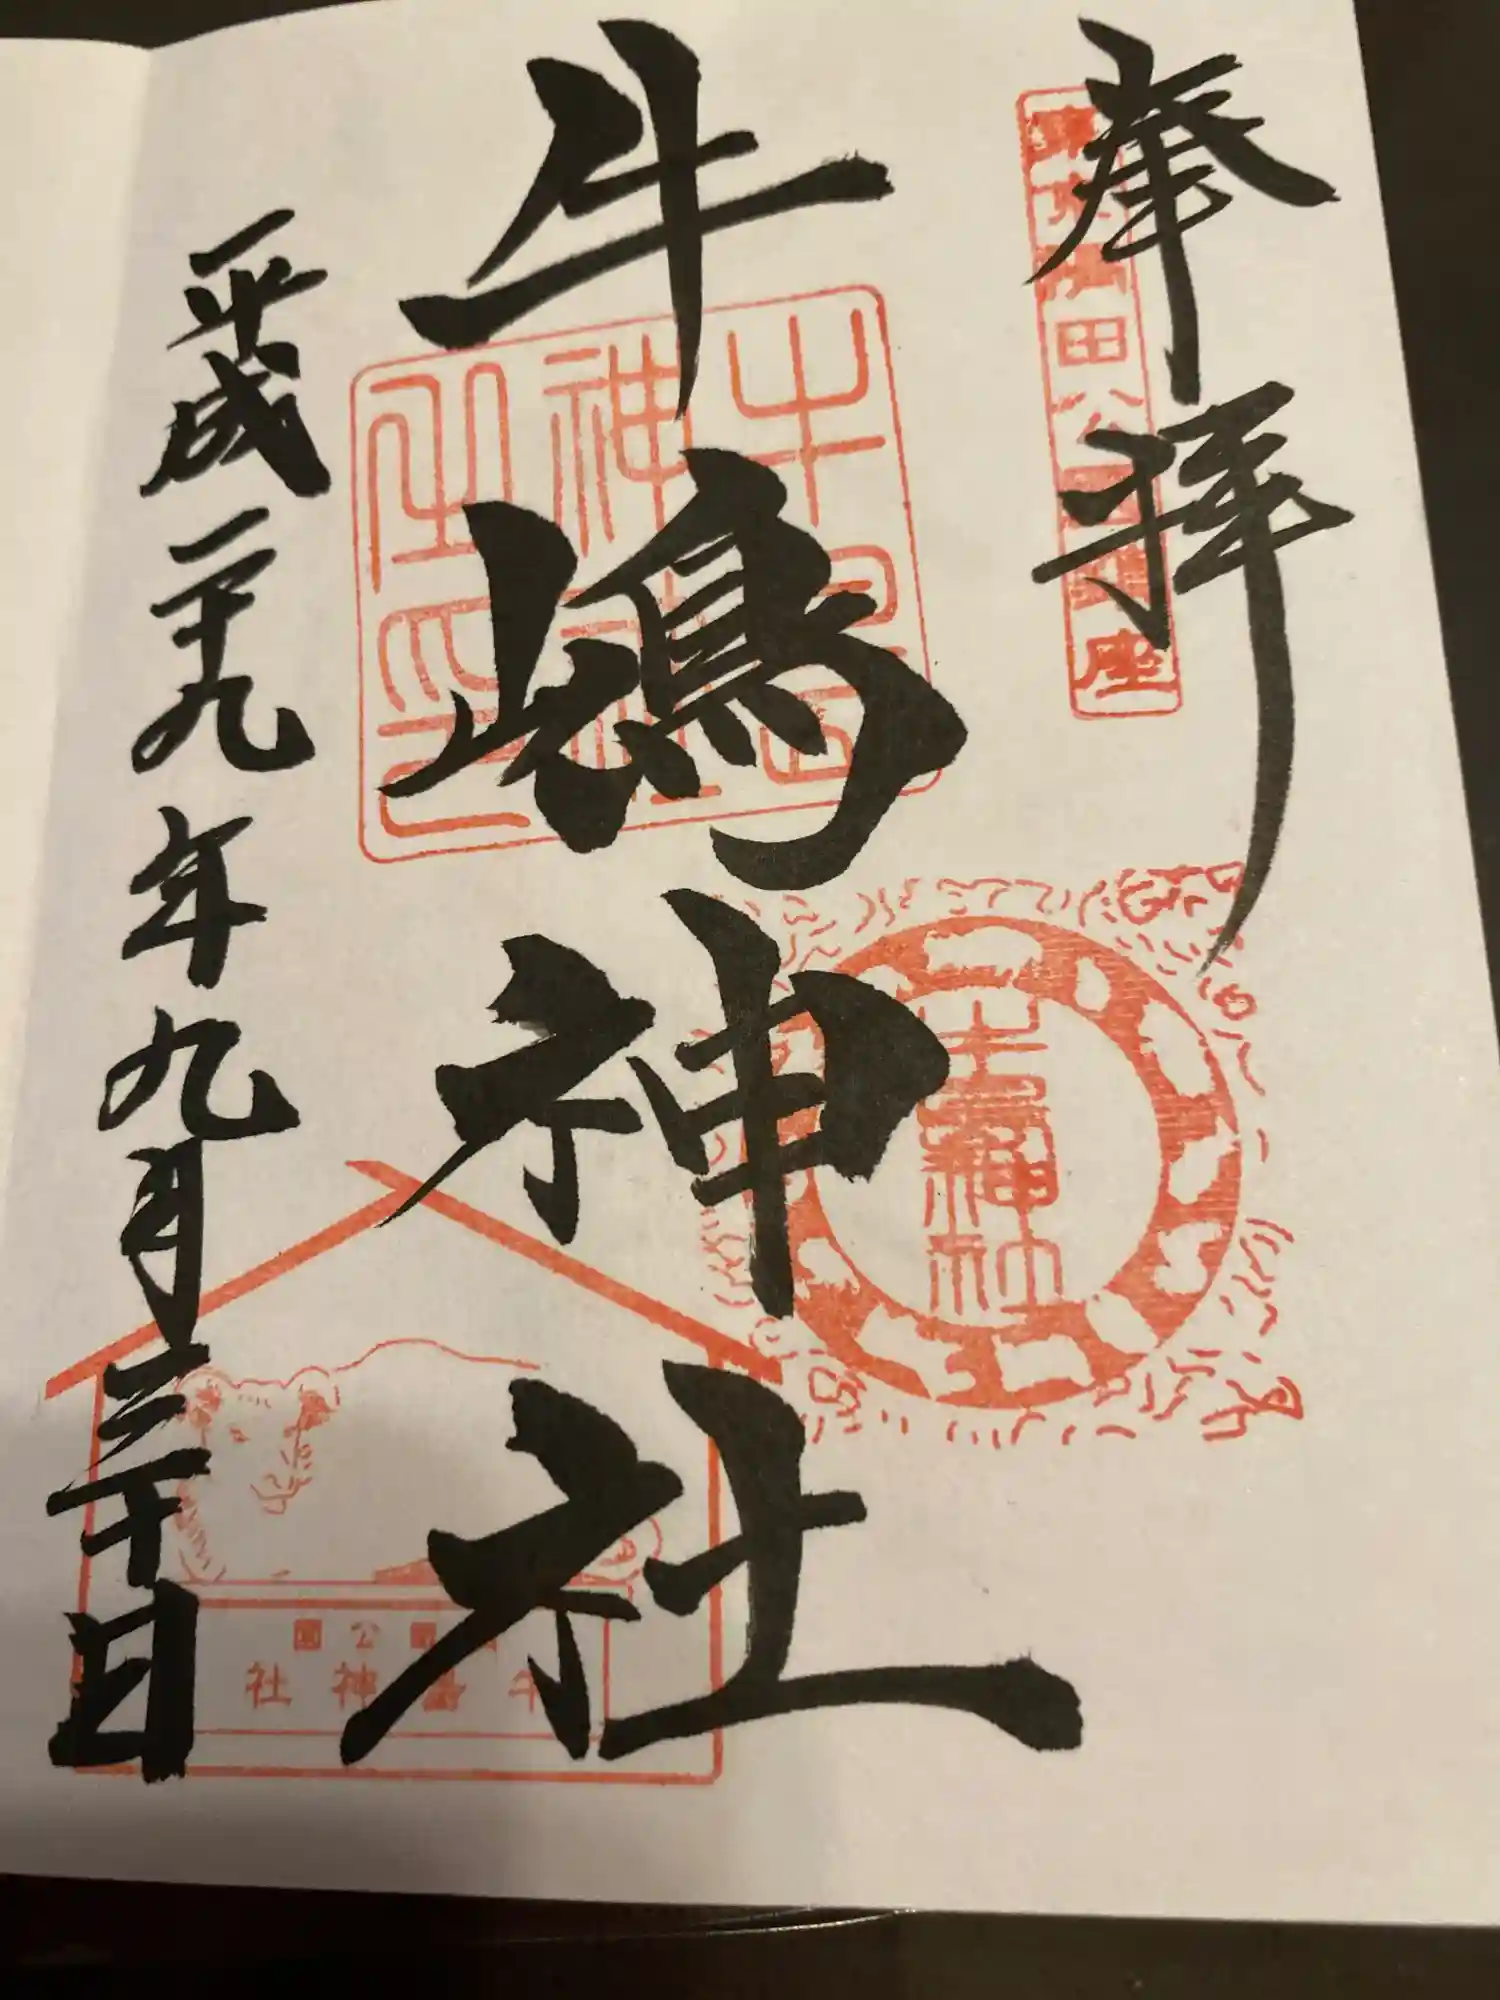 奉拝
東京隅田公園鎮座
牛嶋神社
牛嶋神社之印
牛嶋神社
平成二十九年九月三十日
隅田公園
牛嶋神社